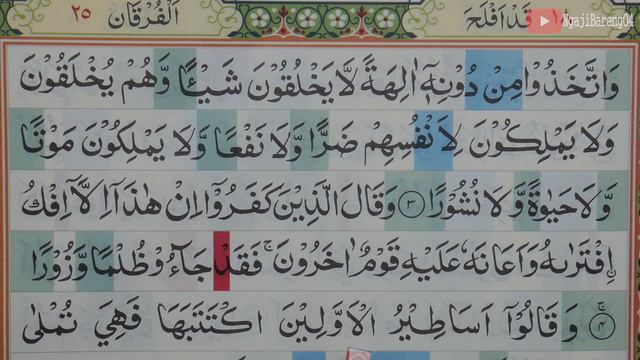 ٢٥ اَلْفُرْقَان قَدْ اَفْلَحَ ١٨ NgajiBareng04
وَاتَّخَذُوْا مِنْ دُوْنِهٖٓ اٰلِهَةً لَّا يَخْلُقُوْنَ شَيْـًٔا وَّهُمْ يُخْلَقُوْنَ
وَلَا يَمْلِكُوْنَ لِاَنْفُسِهِمْ ضَرًّا وَّلَا نَفْعًا وَّلَا يَمْلِكُوْنَ مَوْتًا
وَّلَا حَيٰوةً وَّلَا نُشُوْرًا ۝٣ وَقَالَ الَّذِيْنَ كَفَرُوْٓا اِنْ هٰذَآ اِلَّآ اِفْكُ
ِۨافْتَرٰىهُ وَاَعَانَهٗ عَلَيْهِ قَوْمٌ اٰخَرُوْنَ ۚ فَقَدْ جَاۤءُوْ ظُلْمًا وَّزُوْرًا
۝٤ وَقَالُوْٓا اَسَاطِيْرُ الْاَوَّلِيْنَ اكْتَتَبَهَا فَهِيَ تُمْلٰى